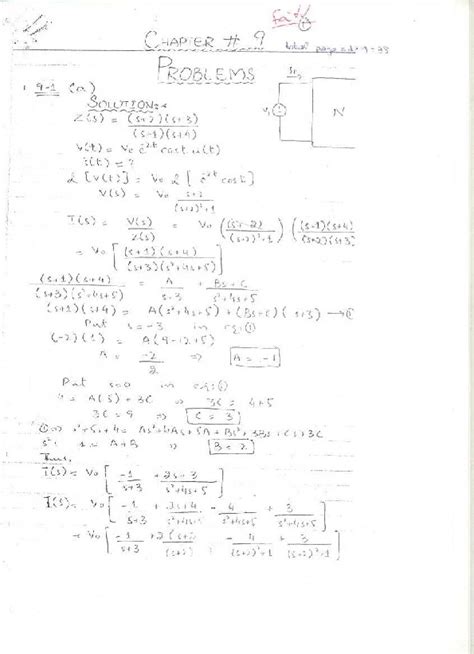 CHAPTER # 9
PROBLEMS
9-1 (a)
SOLUTION:-
Z(s) = (s+2)(s+3) / (s+1)(s+4)
V(t) = Vo e^-2t cost u(t)
i(t) = ?
L[V(t)] = Vo L[e^-2t cost]
V(s) = Vo (s+2) / (s+2)²+1
I(s) = V(s)/Z(s) = Vo ((s+2)/(s+2)²+1) ((s+1)(s+4)/(s+2)(s+3))
= Vo [(s+1)(s+4) / (s+3)(s²+4s+5)]
(s+1)(s+4) / (s+3)(s²+4s+5) = A/(s+3) + Bs+C/(s²+4s+5)
(s+1)(s+4) = A(s²+4s+5) + (Bs+C)(s+3) → ①
Put s=-3 in eq:①
(-2)(1) = A(9-12+5)
A = -2/2 ⇒ A = -1
Put s=0 in eq:①
4 = A(5) + 3C ⇒ 3C = 4+5
3C = 9 ⇒ C = 3
①⇒ s²+5s+4 = As²+4As+5A+Bs²+3Bs+Cs+3C
s²: 1 = A+B ⇒ B = 2
Thus,
I(s) = Vo [-1/(s+3) + 2s+3/(s²+4s+5)]
I(s) = Vo [-1/(s+3) + 2s+4/(s²+4s+5) - 4/(s²+4s+5) + 3/(s²+4s+5)]
= Vo [-1/(s+3) + 2(s+2)/(s+2)²+1 - 4/(s+2)²+1 + 3/(s+2)²+1]
N